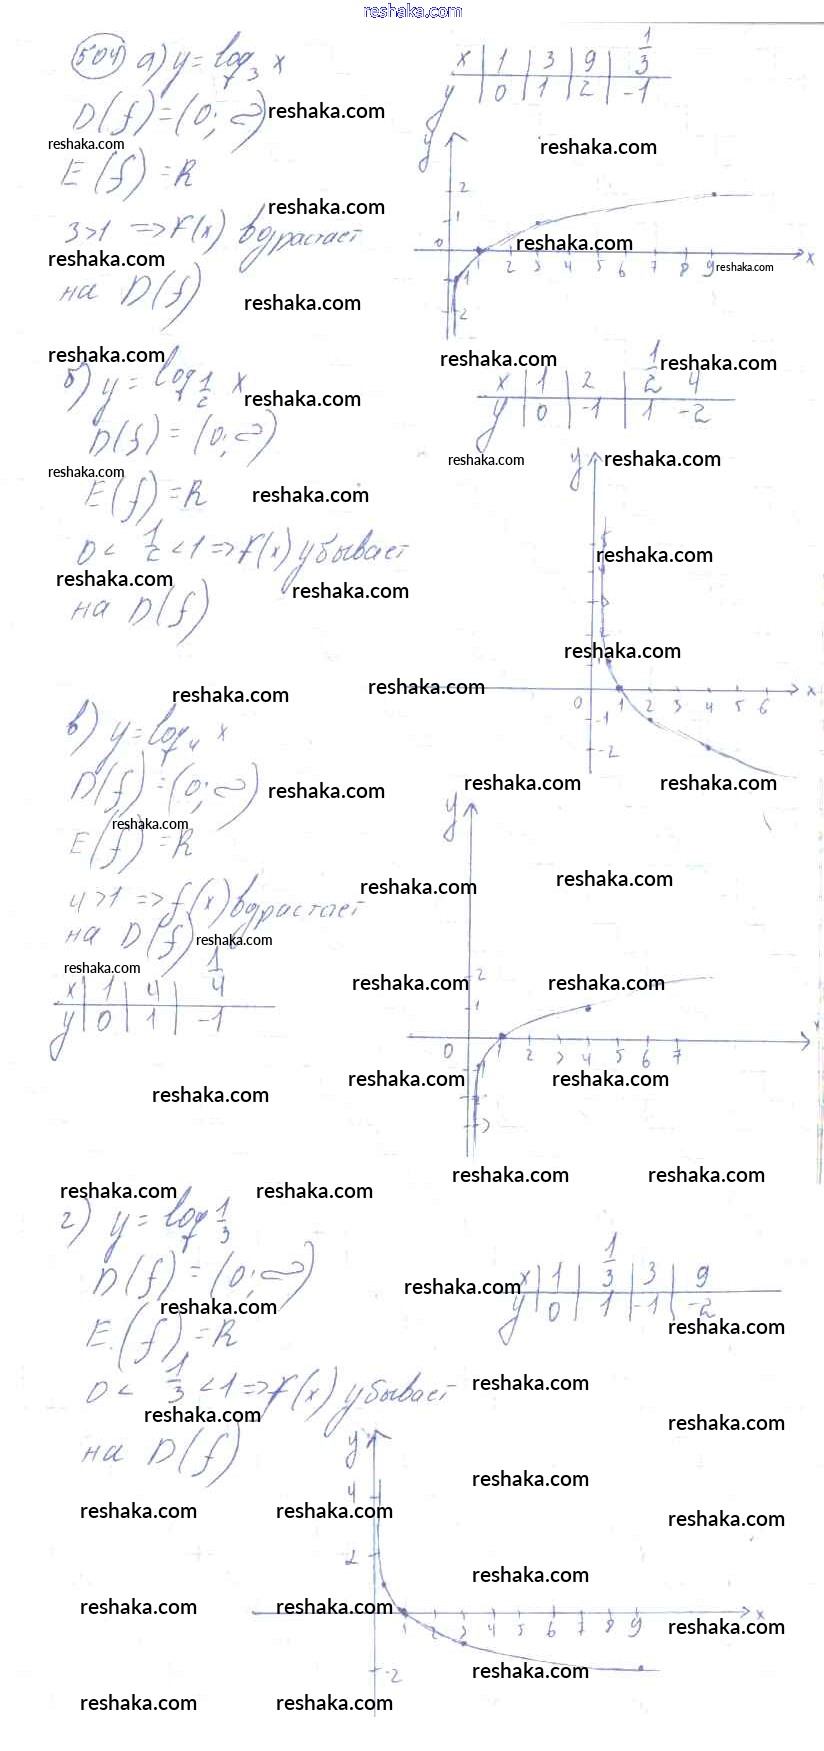 reshaka.com
504 а) y = log₃ x
x | 1 | 3 | 9 | 1/3
y | 0 | 1 | 2 | -1
D(f) = (0; ∞)
E(f) = R
3>1 => f(x) возрастает
на D(f)
y
2
1
0 1 2 3 4 5 6 7 8 9 x
-1
-2
б) y = log 1/2 x
x | 1 | 2 | 1/2 | 4
y | 0 | -1 | 1 | -2
D(f) = (0; ∞)
E(f) = R
0 < 1/2 < 1 => f(x) убывает
на D(f)
y
0 1 2 3 4 5 6 x
-1
-2
в) y = log₄ x
D(f) = (0; ∞)
E(f) = R
4>1 => f(x) возрастает
на D(f)
x | 1 | 4 | 1/4
y | 0 | 1 | -1
y
2
1
0 1 2 3 4 5 6 7
г) y = log 1/3
x | 1 | 1/3 | 3 | 9
y | 0 | 1 | -1 | -2
D(f) = (0; ∞)
E(f) = R
0 < 1/3 < 1 => f(x) убывает
на D(f)
y
4
2
1 2 3 4 5 6 7 8 9 x
-2